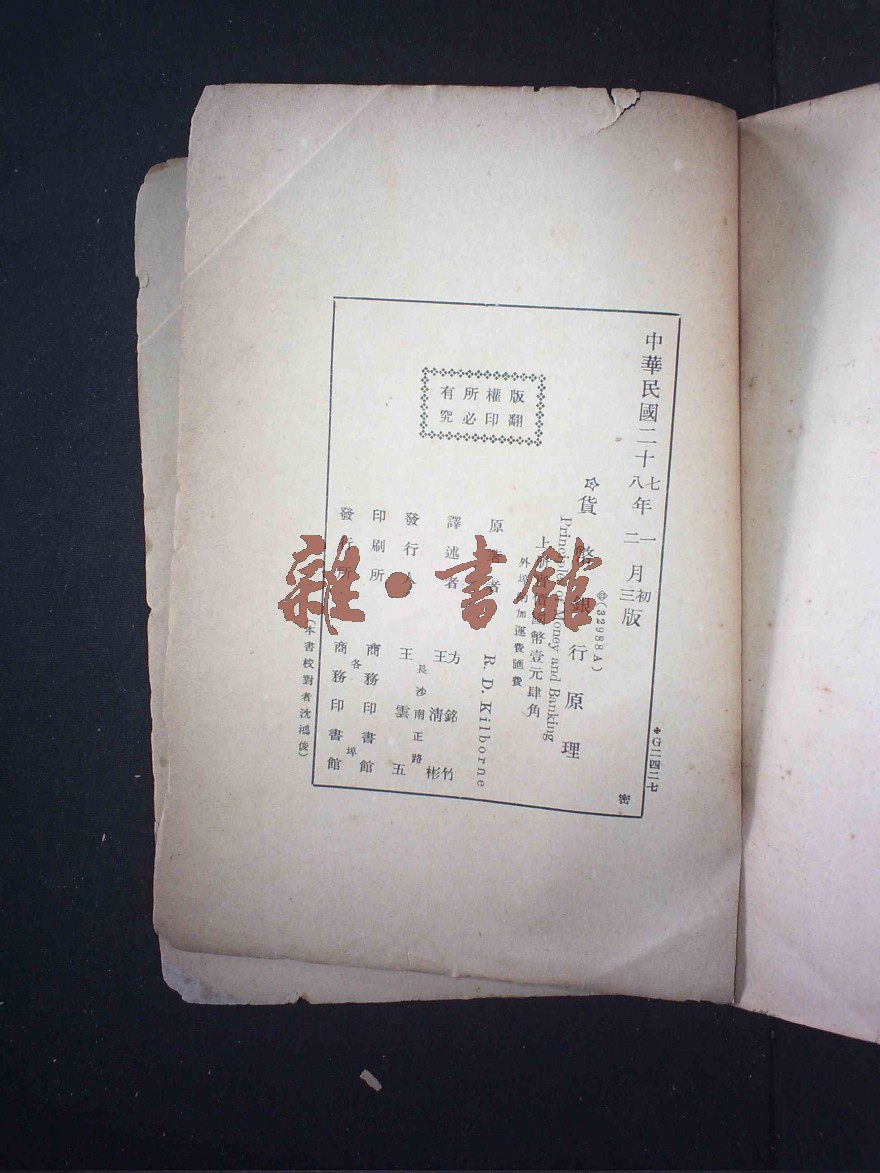 中華民國二十七年一月初版
八 二 三
密
◆G二四二七
⊕(32988A)
貨幣銀行原理
Principles of Money and Banking
上册實價國幣壹元肆角
外埠酌加運費匯費
原著者 R. D. Kilborne
譯述者 方銘竹 王清彬
發行人 王雲五
長沙南正路
印刷所 商務印書館
發行所 商務印書館
各埠
(本書校對者沈鴻俊)
版權所有
翻印必究
雜·書館